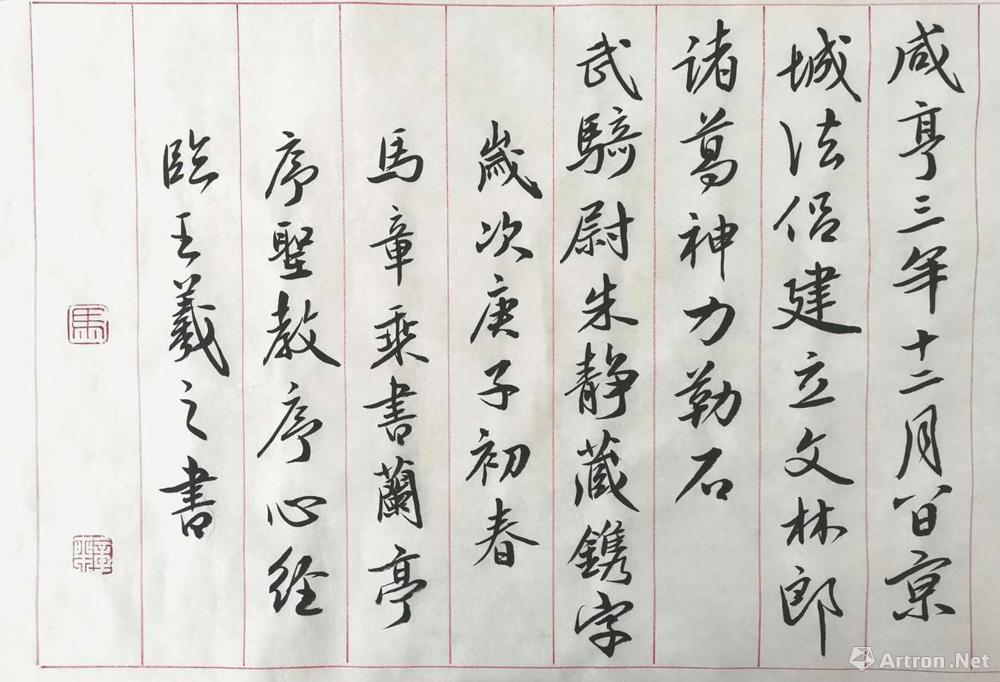 咸亨三年十二月八日京
城法侣建立文林郎
諸葛神力勒石
武騎尉朱静藏鐫字
歲次庚子初春
馬章乘書蘭亭
序聖教序心经
臨王羲之書
馬
Artron.Net